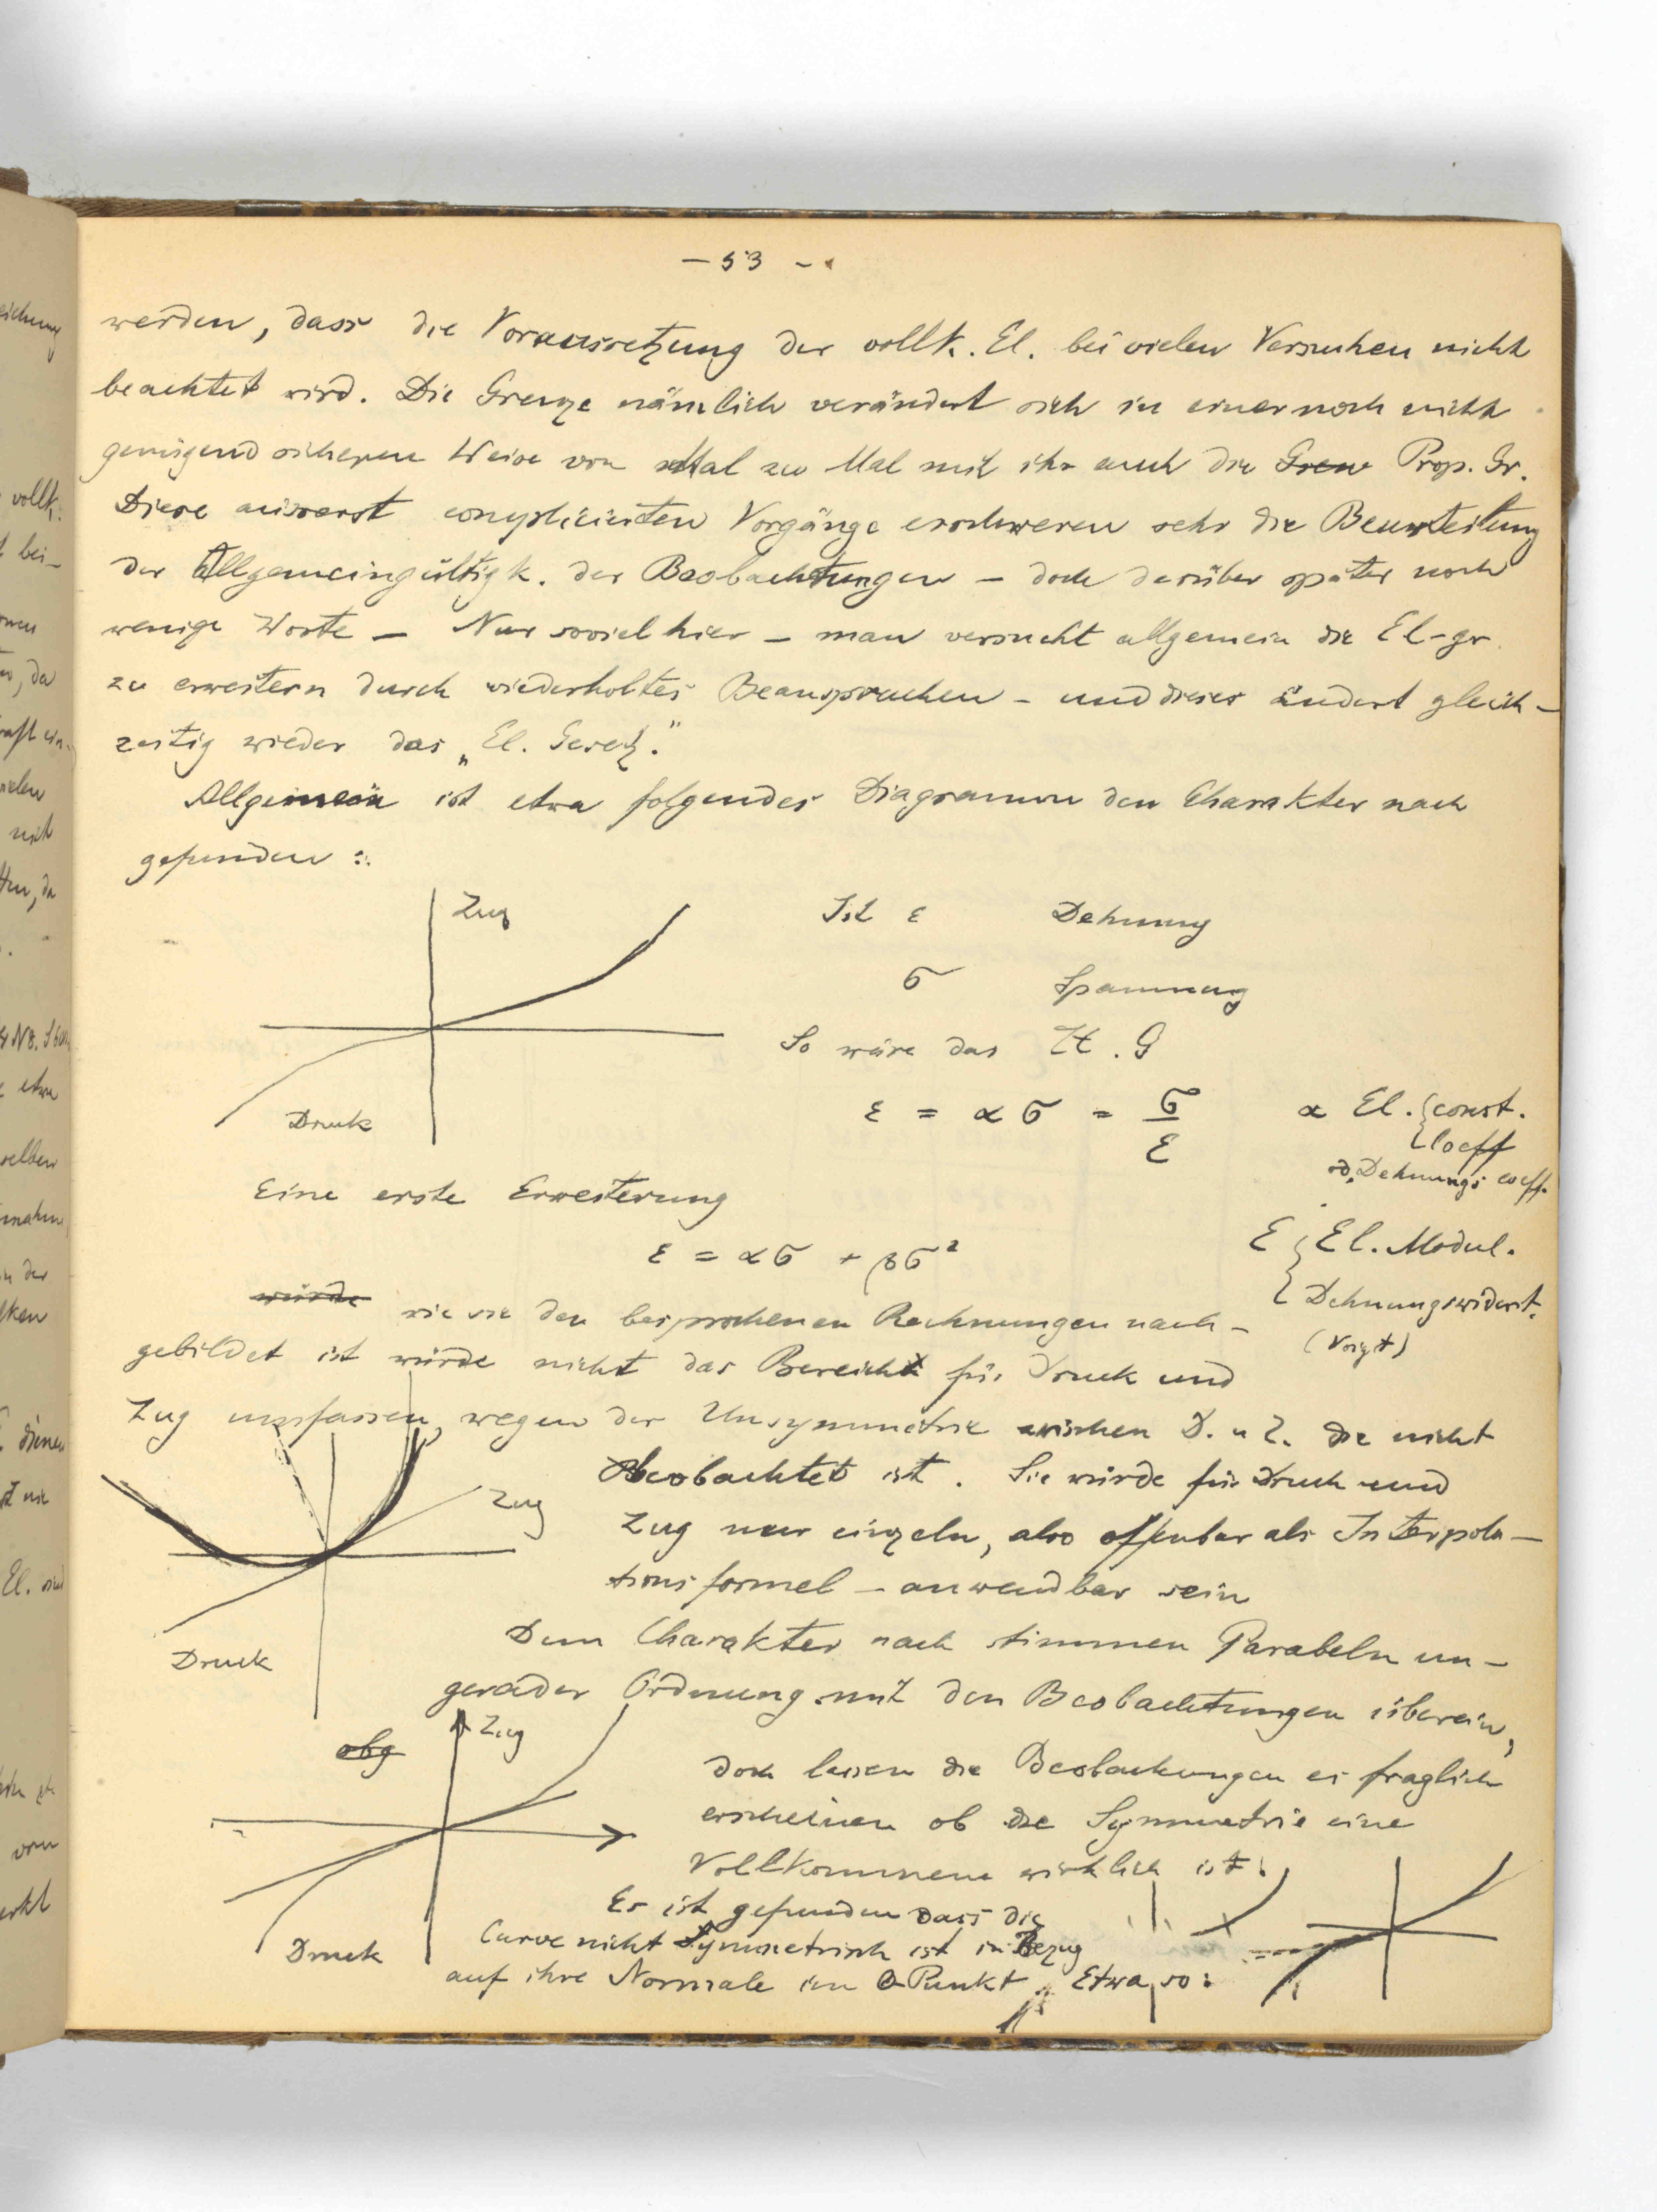 — 53 —
werden, dass die Voraussetzung der vollk. El. bei vielen Versuchen nicht
beachtet wird. Die Grenze nämlich verändert sich in einer noch nicht
genügend sicheren Weise von Mal zu Mal mit ihr auch die Prop. Gr.
Diese äusserst complicierten Vorgänge erschweren sehr die Beurteilung
der Allgemeingültigk. der Beobachtungen — doch darüber später noch
wenige Worte — Nur soviel hier — man versucht allgemein die El-gr.
zu erweitern durch wiederholtes Beanspruchen — und dieses ändert gleich-
zeitig wieder das „El. Gesetz."
Allgemein ist etwa folgendes Diagramm den Charakter nach
gefunden :
Zug
Druck
Ist ε Dehnung
σ Spannung
So wäre das H. G
ε = α σ = σ/E
α El. {const.
{Coeff
od. Dehnungs coeff.
Eine erste Erweiterung
ε = ασ + βσ²
E { El. Modul.
{ Dehnungswiderst.
(Voigt)
würde wie sie den besprochenen Rechnungen nach-
gebildet ist würde nicht das Bereich für Druck und
Zug umfassen, wegen der Unsymmetrie zwischen D. u Z. die nicht
beobachtet ist. Sie würde für Druck und
Zug nur einzeln, also offenbar als Interpola-
tionsformel — anwendbar sein
Zug
Druck
Dem Charakter nach stimmen Parabeln un-
gerader Ordnung mit den Beobachtungen überein,
doch lassen die Beobachungen es fraglich
erscheinen ob die Symmetrie eine
Vollkommene wirklich ist.
abg
Zug
Druck
Es ist gefunden dass die
Curve nicht Symmetrisch ist in Bezug
auf ihre Normale im 0 Punkt. Etwa so: